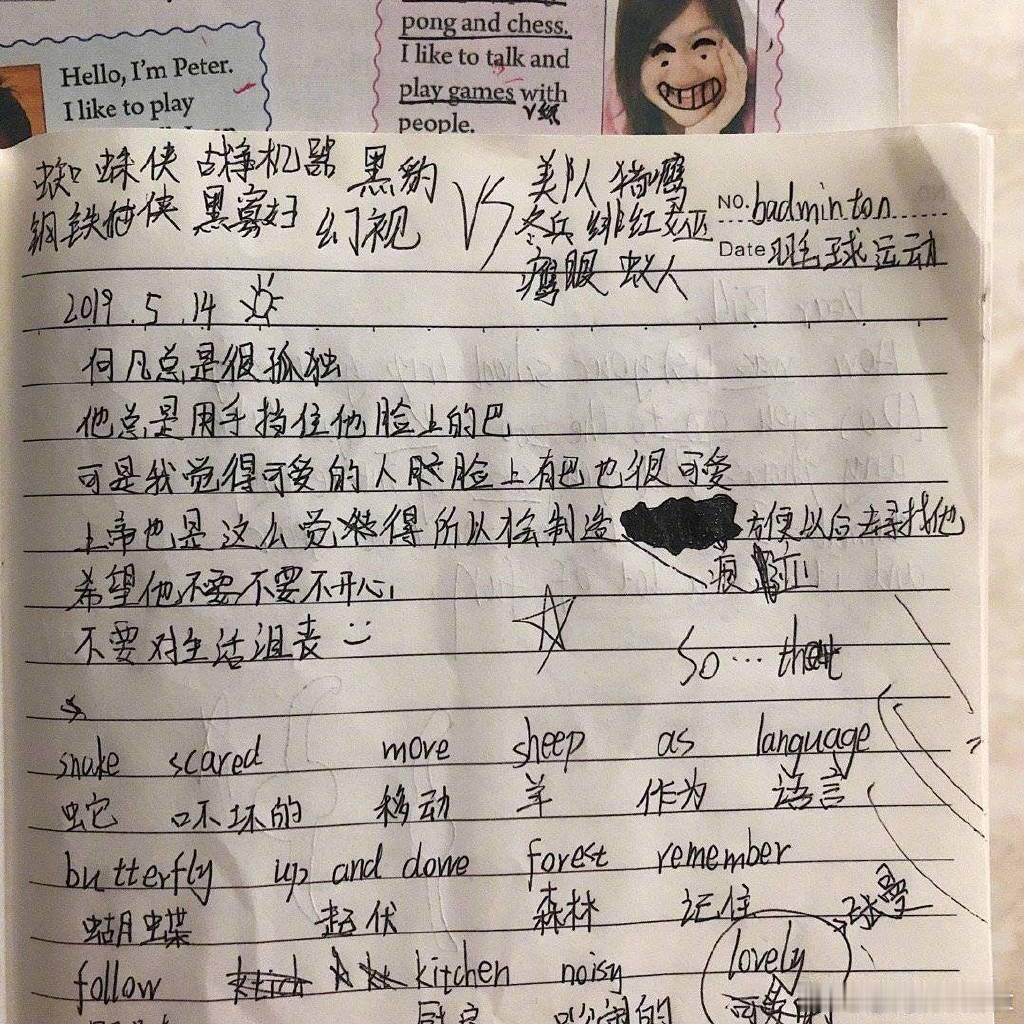 Hello, I'm Peter.
I like to play
pong and chess.
I like to talk and
play games with
people.
蜘蛛侠 战争机器 黑豹
钢铁侠 黑寡妇 幻视
VS
美队 猎鹰
冬兵 绯红女巫
鹰眼 蚁人
NO. badminton
Date 羽毛球运动
2019.5.14
何凡总是很孤独
他总是用手挡住他脸上的巴
可是我觉得可爱的人脸上有巴也很可爱
上帝也是这么觉得所以给制造 方便以后去寻找他
希望他不要不要不开心,
不要对生活沮丧
So... that
snake scared move sheep as language
蛇 吓坏的 移动 羊 作为 语言
butterfly up and done forest remember
蝴蝶 起伏 森林 记住
follow kitchen noisy lovely
厨房 吵闹的 可爱的